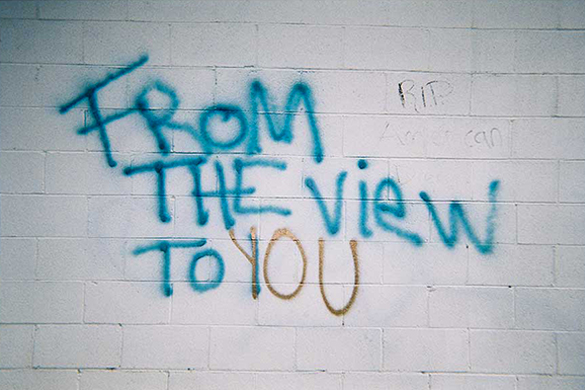 FROM
THE view
To YOU
RIP
American